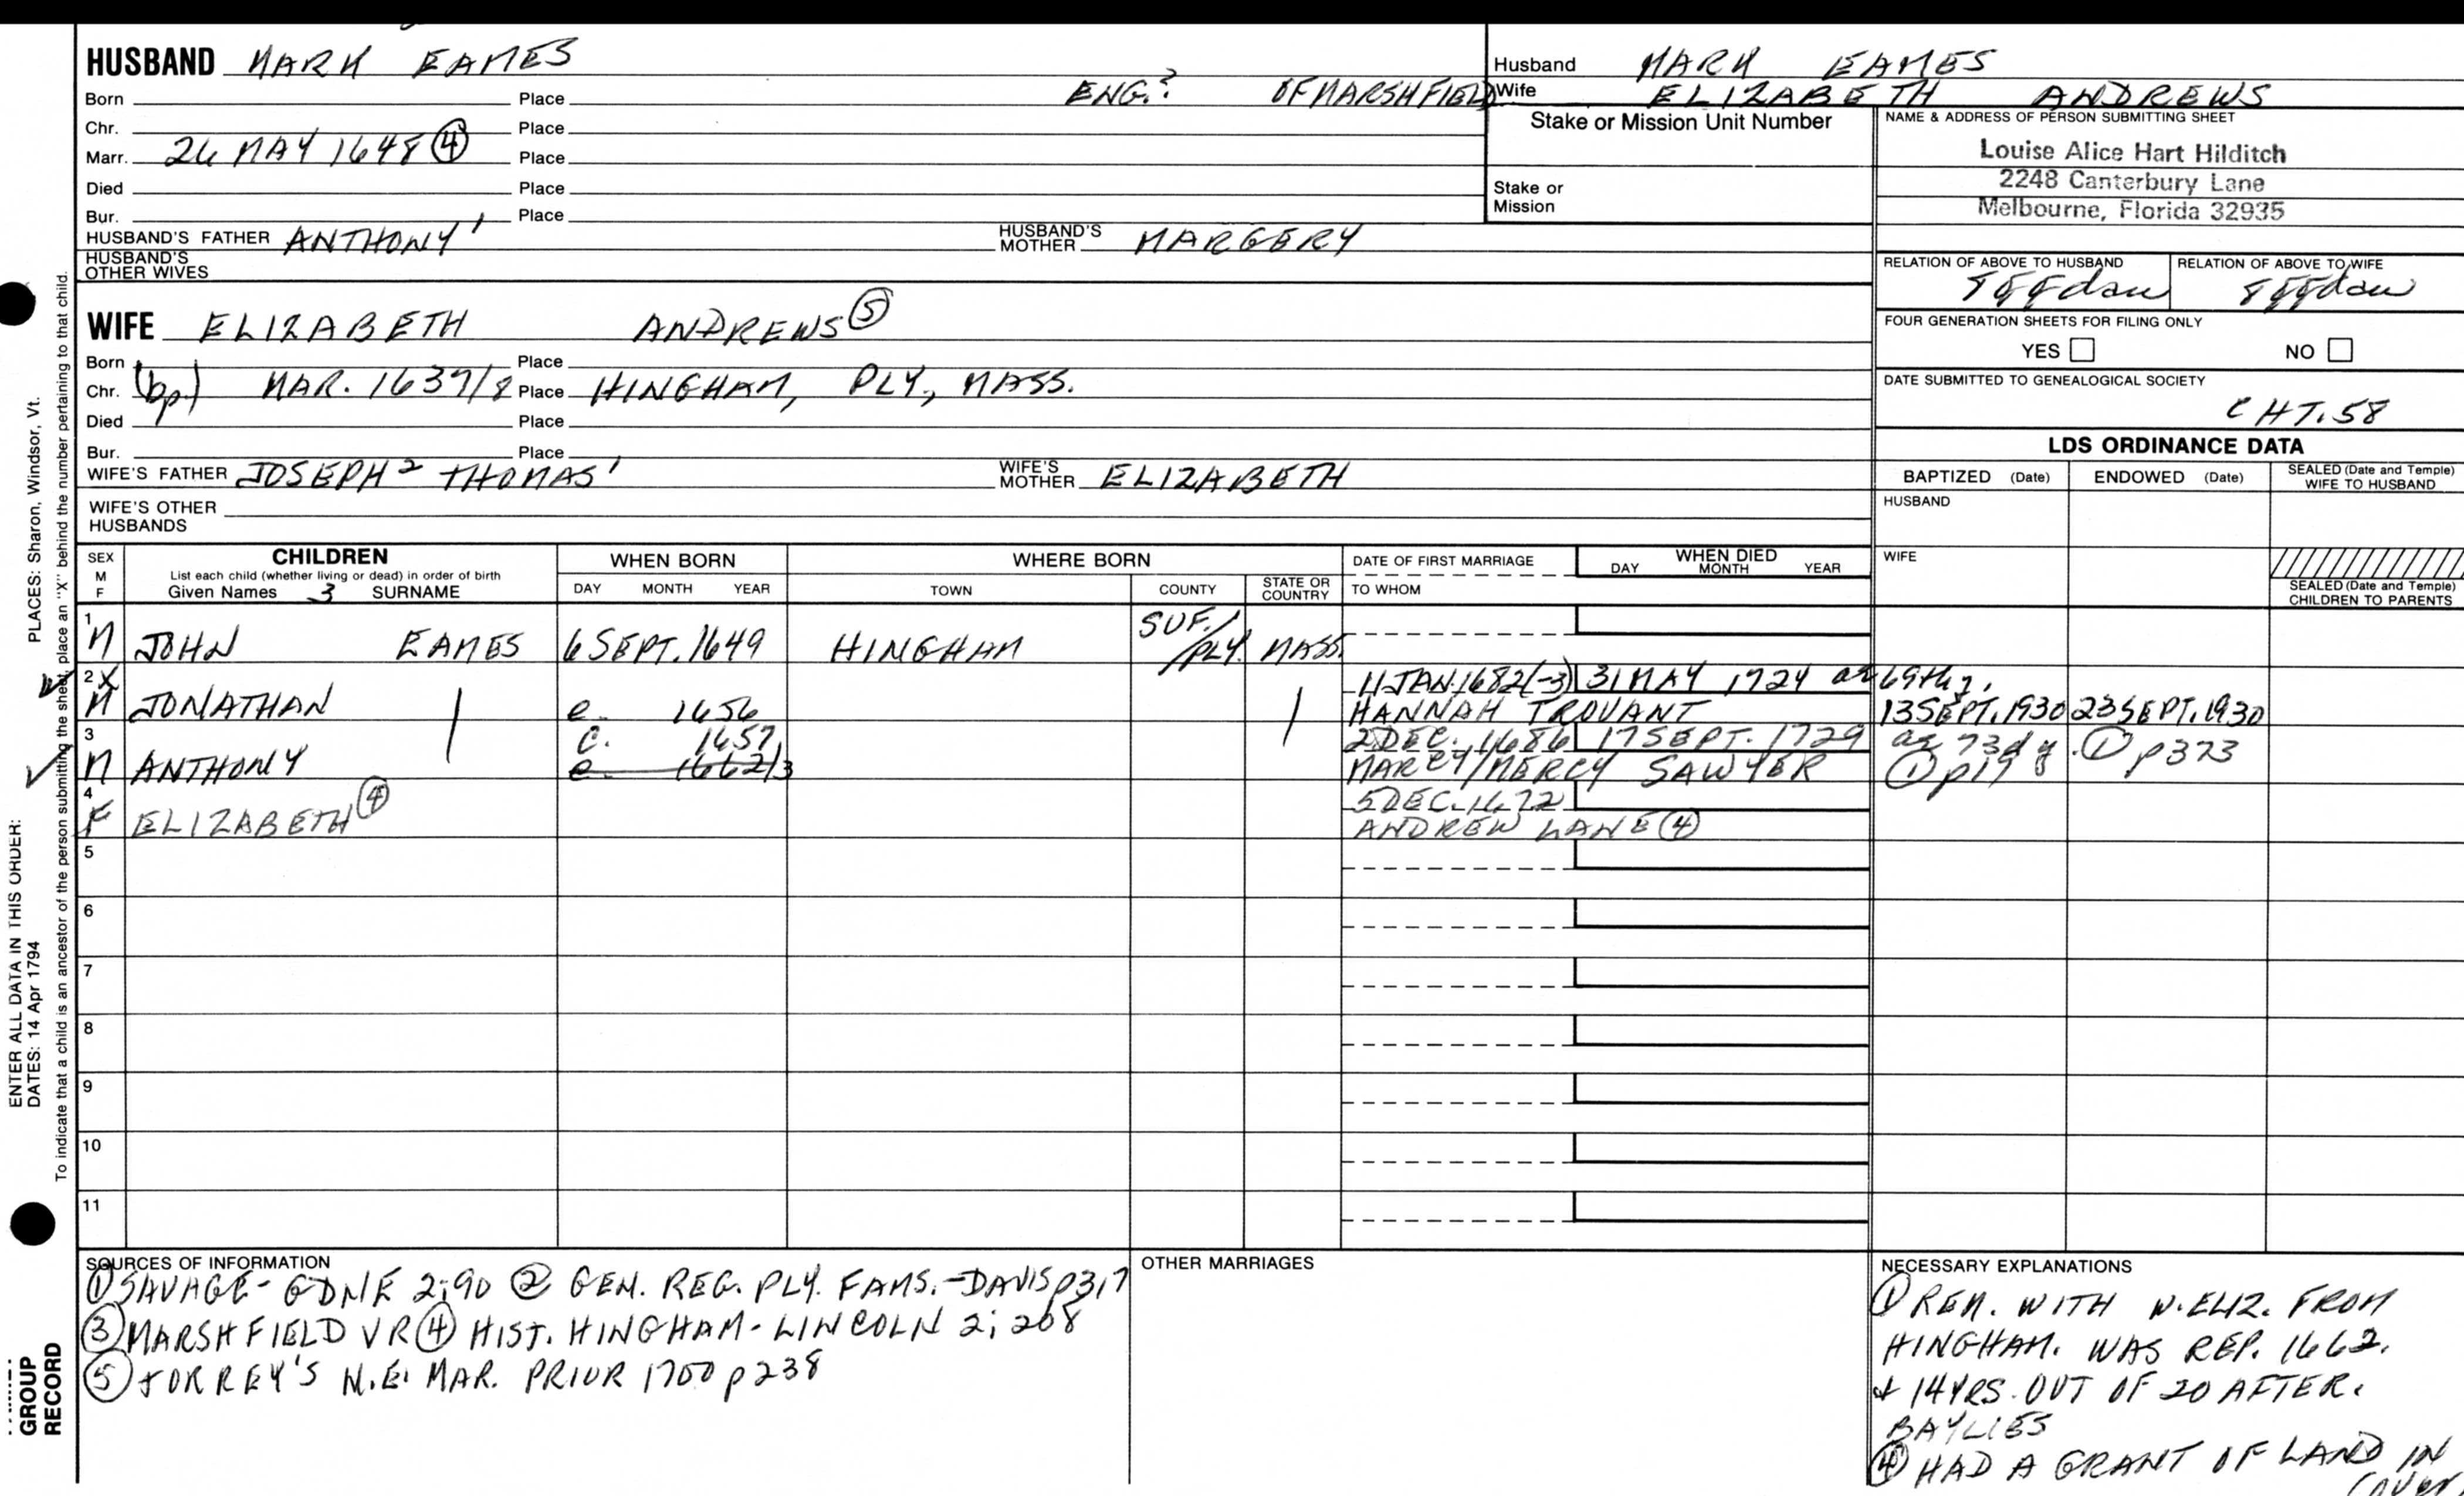 HUSBAND MARK EAMES
Born Place ENG.? OF MARSHFIELD
Chr. Place
Marr. 26 MAY 1648 ④ Place
Died Place
Bur. Place
HUSBAND'S FATHER ANTHONY ¹ HUSBAND'S MOTHER MARGERY
HUSBAND'S OTHER WIVES
WIFE ELIZABETH ANDREWS ⑤
Born Place
Chr. (bp.) MAR. 1637/8 Place HINGHAM, PLY., MASS.
Died Place
Bur. Place
WIFE'S FATHER JOSEPH ² THOMAS ¹ WIFE'S MOTHER ELIZABETH
WIFE'S OTHER HUSBANDS
Husband MARK EAMES
Wife ELIZABETH ANDREWS
Stake or Mission Unit Number
Stake or Mission
NAME & ADDRESS OF PERSON SUBMITTING SHEET
Louise Alice Hart Hilditch
2248 Canterbury Lane
Melbourne, Florida 32935
RELATION OF ABOVE TO HUSBAND RELATION OF ABOVE TO WIFE
8ggdau 8ggdau
FOUR GENERATION SHEETS FOR FILING ONLY
YES NO
DATE SUBMITTED TO GENEALOGICAL SOCIETY
CHT. 58
LDS ORDINANCE DATA
BAPTIZED (Date) ENDOWED (Date) SEALED (Date and Temple) WIFE TO HUSBAND
HUSBAND
WIFE
SEALED (Date and Temple) CHILDREN TO PARENTS
SEX M F
CHILDREN
List each child (whether living or dead) in order of birth
Given Names 3 SURNAME
WHEN BORN
DAY MONTH YEAR
WHERE BORN
TOWN COUNTY STATE OR COUNTRY
DATE OF FIRST MARRIAGE
TO WHOM
WHEN DIED
DAY MONTH YEAR
1 M JOHN EAMES 6 SEPT. 1649 HINGHAM SUF./PLY. MASS.
2 X M JONATHAN | c. 1656 | 11 JAN. 1682(-3) 31 MAY 1724 ae 69th y.
HANNAH TROUANT 13 SEPT. 1930 23 SEPT. 1930
3 M ANTHONY c. 1657 c. 1662/3 2 DEC. 1686 17 SEPT. 1729 ae 73d y. ① p373
MARCY/MERCY SAWYER ① p19
4 F ELIZABETH ④ 5 DEC. 1672
ANDREW LANE ④
5
6
7
8
9
10
11
SOURCES OF INFORMATION
① SAVAGE - GDNE 2;90 ② GEN. REG. PLY. FAMS. - DAVIS p317
③ MARSHFIELD VR ④ HIST. HINGHAM - LINCOLN 2; 208
⑤ TORREY'S N.E. MAR. PRIOR 1700 p238
OTHER MARRIAGES
NECESSARY EXPLANATIONS
① REM. WITH W. ELIZ. FROM
HINGHAM. WAS REP. 1662.
+ 14 YRS. OUT OF 20 AFTER.
BAYLIES
④ HAD A GRANT OF LAND IN
(over
PLACES: Sharon, Windsor, Vt.
ENTER ALL DATA IN THIS ORDER:
DATES: 14 Apr 1794
To indicate that a child is an ancestor of the person submitting the sheet, place an "X" behind the number pertaining to that child.
GROUP
RECORD